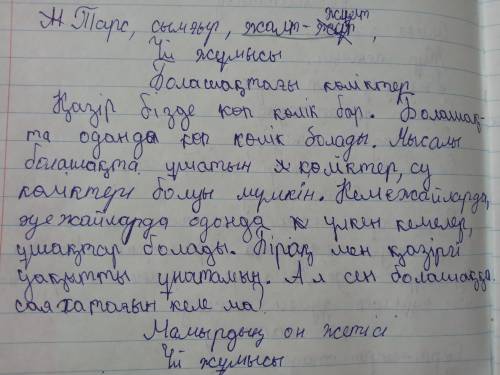 Тарс, сымдыр, жалт-жұлт,
Үй жұмысы
Болашақтағы көліктер
Қазір бізде көп көлік бар. Болашақ-
та одандa көп көлік болады. Мысалы
болашақта ұшатын көліктер, су
көліктері болуы мүмкін. Кемежайларда,
әуежайларда одонда үлкен кемелер,
ұшақтар болады. Бірақ мен қазіргі
уақытты ұнатамын. Ал сен болашаққа
саяхаттағын келе ма?
Мамырдың он жетісі
Үй жұмысы